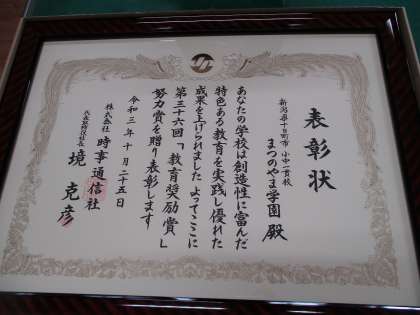 表彰状
新潟県十日町市 小中一貫校
まつのやま学園 殿
あなたの学校は創造性に富んだ
特色ある教育を実践し優れた
成果を上げられました よってここに
第三十六回「教育奨励賞」
努力賞を贈り表彰します
令和三年十月二十五日
株式会社 時事通信社
代表取締役社長 境 克彦